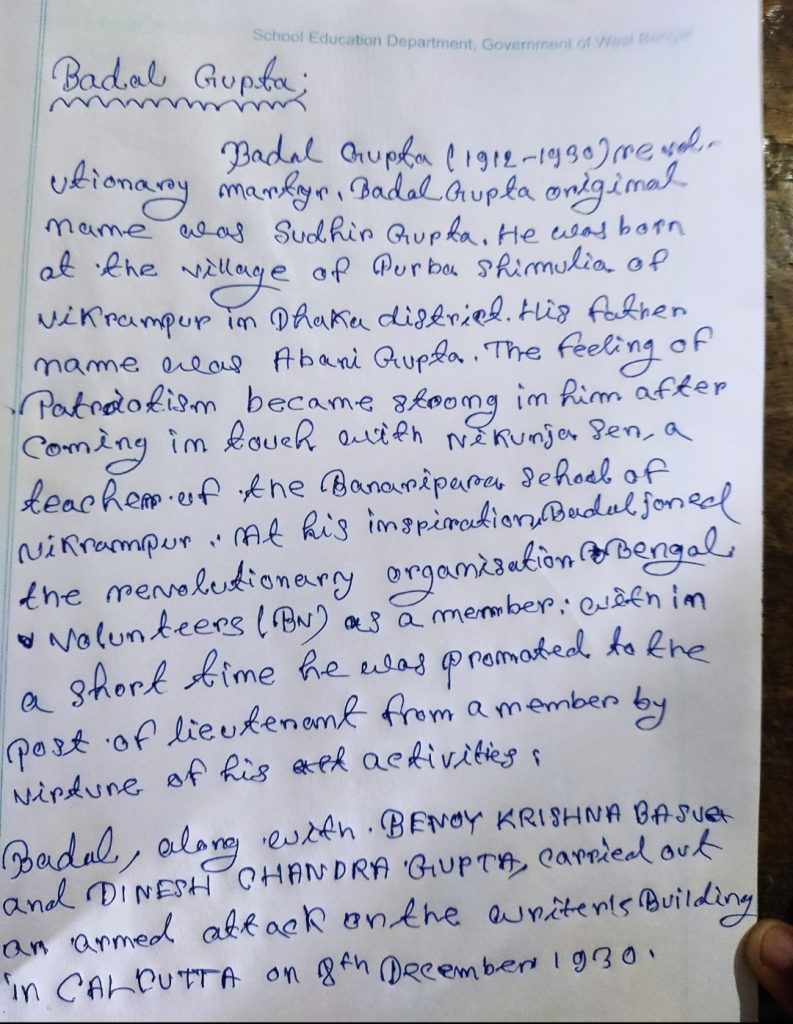 School Education Department, Government of West Bengal
Badal Gupta;
Badal Gupta (1912-1930) revol-
utionary martyr. Badal Gupta original
name was Sudhir Gupta. He was born
at the village of Purba Shimulia of
Vikrampur in Dhaka district. His father
name was Abani Gupta. The feeling of
Patriotism became strong in him after
Coming in touch with Nikunja Sen, a
teacher of the Banaripara School of
Vikrampur. At his inspiration, Badal joned
the revolutionary organisation Bengal
Volunteers (BV) as a member. with in
a short time he was promated to the
post of lieutenant from a member by
virture of his activities.
Badal, along with BENOY KRISHNA BASU
and DINESH CHANDRA GUPTA, carried out
an armed attack on the writer's Building
in CALCUTTA on 8th December 1930.